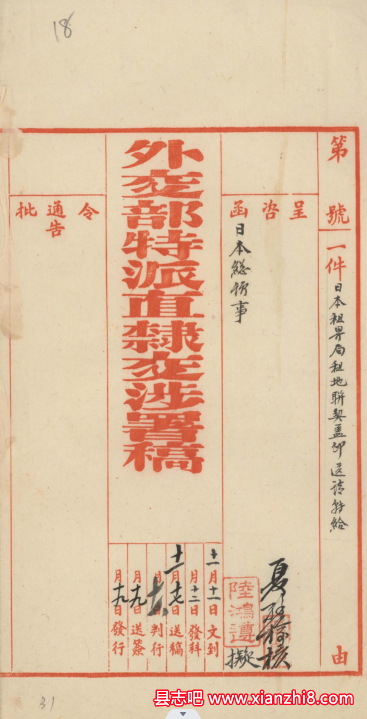 18
第　號
一件　日本租界局租地聯契蓋印送請轉給　由
呈咨函
日本總領事
核
擬
外交部特派直隸交涉署稿
十一月十一日文到
月十二日發科
十一月十七日送稿
月　日判行
月十九日送簽
月十九日發行
令
通告
批
31
县志吧 www.xianzhi8.com